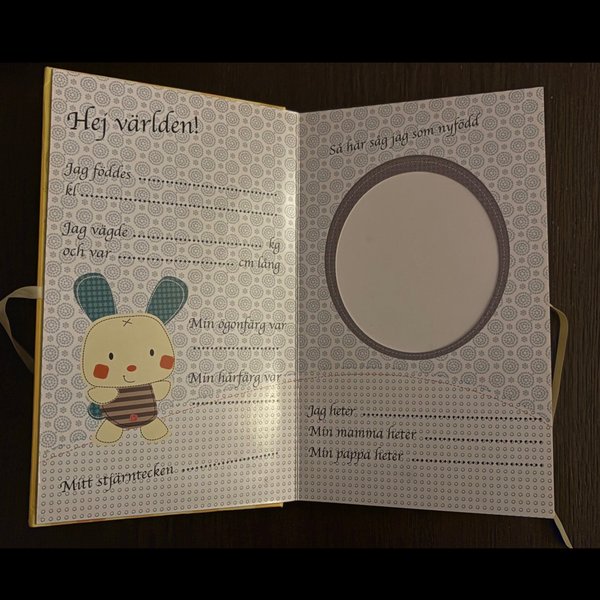 Hej världen!
Jag föddes ........................................
kl ........................................
Jag vägde ........................................ kg
och var .............................. cm lång
Min ögonfärg var
........................
Min hårfärg var
........................
Mitt stjärntecken ........................
Så här såg jag som nyfödd
Jag heter ........................................
Min mamma heter ..............................
Min pappa heter ..............................